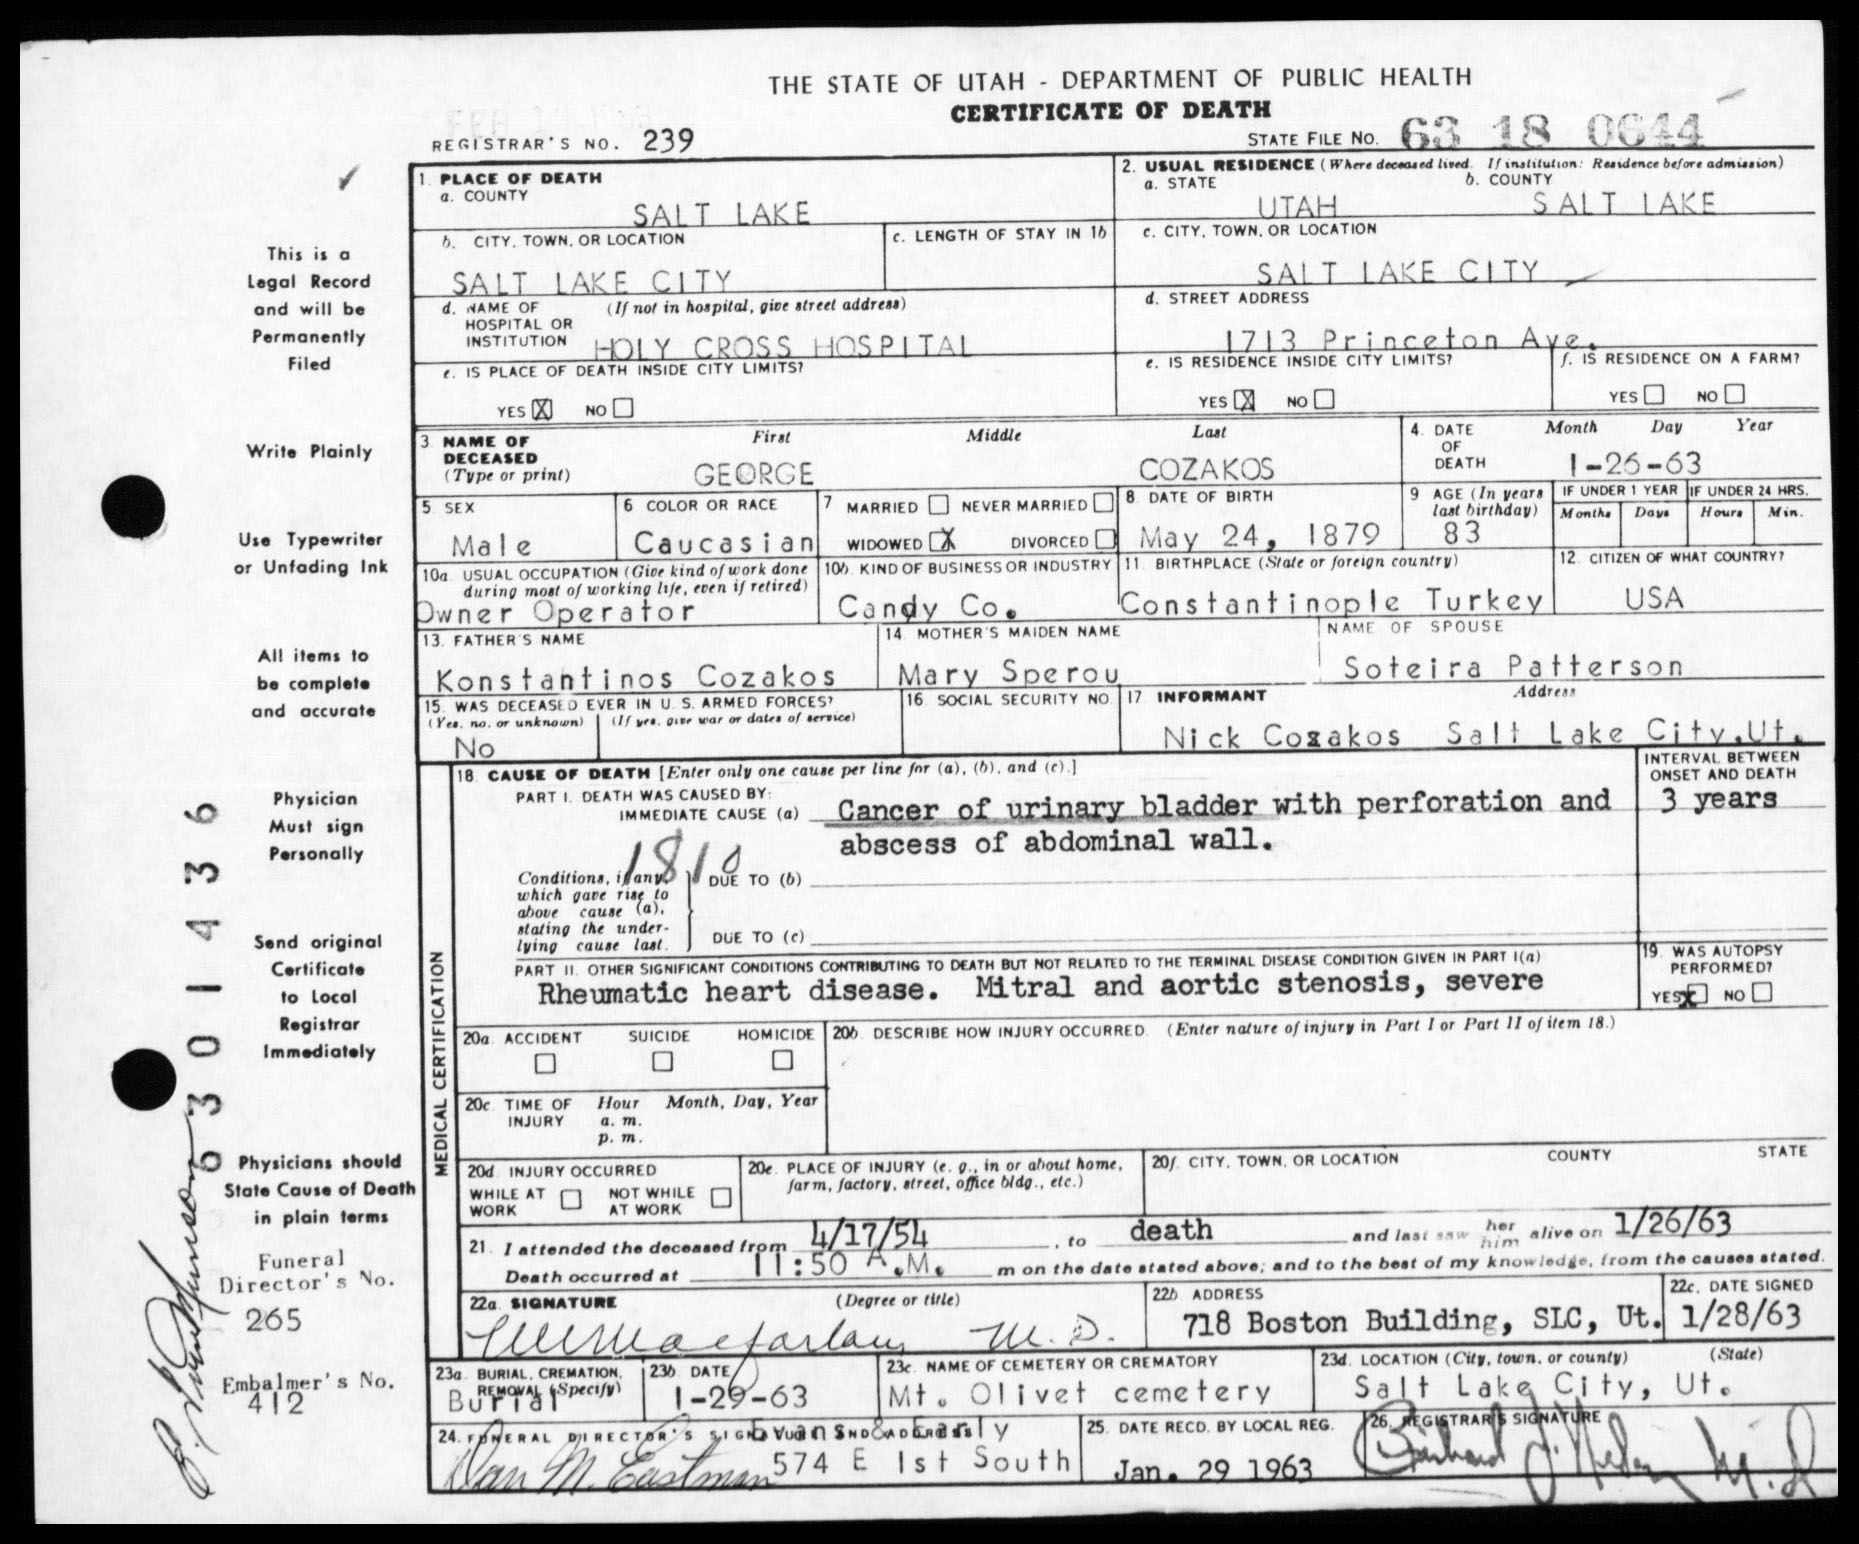 THE STATE OF UTAH - DEPARTMENT OF PUBLIC HEALTH
CERTIFICATE OF DEATH
REGISTRAR'S NO. 239
STATE FILE NO. 63 18 0644
1. PLACE OF DEATH
a. COUNTY
SALT LAKE
2. USUAL RESIDENCE (Where deceased lived. If institution: Residence before admission)
a. STATE b. COUNTY
UTAH SALT LAKE
b. CITY, TOWN, OR LOCATION
SALT LAKE CITY
c. LENGTH OF STAY IN 1b
c. CITY, TOWN, OR LOCATION
SALT LAKE CITY
d. NAME OF HOSPITAL OR INSTITUTION (If not in hospital, give street address)
HOLY CROSS HOSPITAL
d. STREET ADDRESS
1713 Princeton Ave.
e. IS PLACE OF DEATH INSIDE CITY LIMITS?
YES X NO
e. IS RESIDENCE INSIDE CITY LIMITS?
YES X NO
f. IS RESIDENCE ON A FARM?
YES NO
3. NAME OF DECEASED (Type or print)
First Middle Last
GEORGE COZAKOS
4. DATE OF DEATH
Month Day Year
1-26-63
5. SEX
Male
6 COLOR OR RACE
Caucasian
7 MARRIED NEVER MARRIED
WIDOWED X DIVORCED
8. DATE OF BIRTH
May 24, 1879
9 AGE (In years last birthday)
83
IF UNDER 1 YEAR
Months Days
IF UNDER 24 HRS.
Hours Min.
10a. USUAL OCCUPATION (Give kind of work done during most of working life, even if retired)
Owner Operator
10b. KIND OF BUSINESS OR INDUSTRY
Candy Co.
11. BIRTHPLACE (State or foreign country)
Constantinople Turkey
12. CITIZEN OF WHAT COUNTRY?
USA
13. FATHER'S NAME
Konstantinos Cozakos
14. MOTHER'S MAIDEN NAME
Mary Sperou
NAME OF SPOUSE
Soteira Patterson
15. WAS DECEASED EVER IN U. S. ARMED FORCES?
(Yes, no, or unknown) (If yes, give war or dates of service)
No
16. SOCIAL SECURITY NO.
17 INFORMANT Address
Nick Cozakos Salt Lake City,Ut.
MEDICAL CERTIFICATION
18. CAUSE OF DEATH [Enter only one cause per line for (a), (b), and (c).]
INTERVAL BETWEEN ONSET AND DEATH
PART I. DEATH WAS CAUSED BY:
IMMEDIATE CAUSE (a) Cancer of urinary bladder with perforation and
abscess of abdominal wall.
3 years
1810
Conditions, if any, which gave rise to above cause (a), stating the underlying cause last.
DUE TO (b)
DUE TO (c)
PART II. OTHER SIGNIFICANT CONDITIONS CONTRIBUTING TO DEATH BUT NOT RELATED TO THE TERMINAL DISEASE CONDITION GIVEN IN PART I(a)
Rheumatic heart disease. Mitral and aortic stenosis, severe
19. WAS AUTOPSY PERFORMED?
YES X NO
20a. ACCIDENT SUICIDE HOMICIDE
20b. DESCRIBE HOW INJURY OCCURRED. (Enter nature of injury in Part I or Part II of item 18.)
20c. TIME OF INJURY Hour Month, Day, Year
a. m.
p. m.
20d. INJURY OCCURRED
WHILE AT WORK NOT WHILE AT WORK
20e. PLACE OF INJURY (e. g., in or about home, farm, factory, street, office bldg., etc.)
20f. CITY, TOWN, OR LOCATION COUNTY STATE
21. I attended the deceased from 4/17/54, to death and last saw her him alive on 1/26/63
Death occurred at 11:50 A.M. m on the date stated above; and to the best of my knowledge, from the causes stated.
22a. SIGNATURE (Degree or title)
Macfarlane M. D.
22b. ADDRESS
718 Boston Building, SLC, Ut.
22c. DATE SIGNED
1/28/63
23a. BURIAL, CREMATION, REMOVAL (Specify)
Burial
23b. DATE
1-29-63
23c. NAME OF CEMETERY OR CREMATORY
Mt. Olivet cemetery
23d. LOCATION (City, town, or county) (State)
Salt Lake City, Ut.
24. FUNERAL DIRECTOR'S SIGNATURE AND ADDRESS
Evans & Early
Dan M. Eastman 574 E 1st South
25. DATE RECD. BY LOCAL REG.
Jan. 29 1963
26. REGISTRAR'S SIGNATURE
M.D
This is a
Legal Record
and will be
Permanently
Filed
Write Plainly
Use Typewriter
or Unfading Ink
All items to
be complete
and accurate
Physician
Must sign
Personally
Send original
Certificate
to Local
Registrar
Immediately
Physicians should
State Cause of Death
in plain terms
Funeral
Director's No.
265
Embalmer's No.
412
6301436